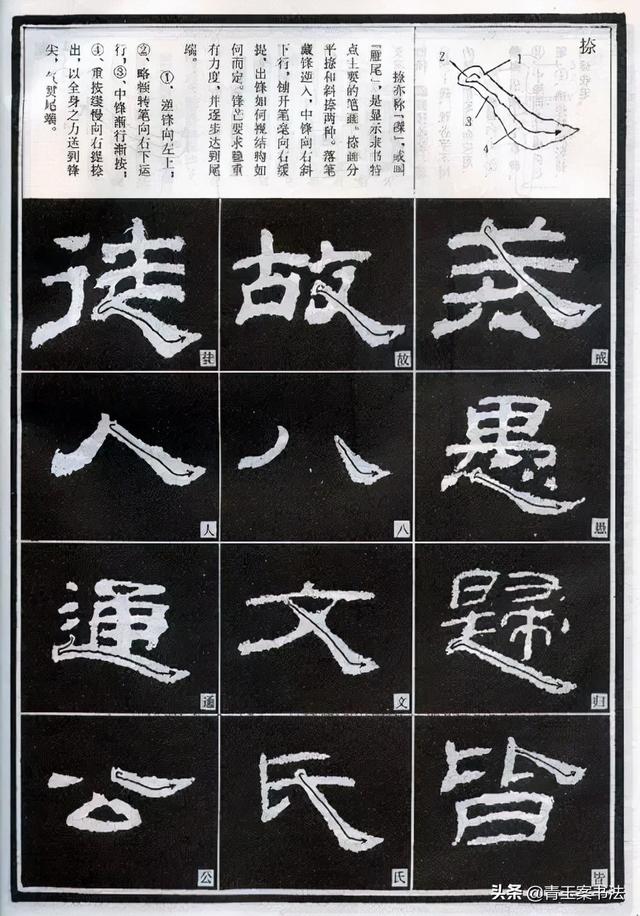 捺
1
2
3
4
捺亦称「磔」，或画
「雁尾」，是显示隶书特
点主要的笔画。捺画分
平捺和斜捺两种。落笔
藏锋逆入，中锋向右斜
下行，铺开笔毫向右缓
提，出锋如何视结构如
何而定。锋芒要求稳重
有力度，并逐步达到尾
端。
①、逆锋向左上；
②、略顿转笔向右下运
行；③、中锋渐行渐按；
④、重按缓慢向右提捺
出，以全身之力送到锋
尖，气贯尾端。
戒
故
故
徒
徒
愚
愚
八
八
人
人
歸
归
文
文
通
通
皆
皆
氏
氏
公
公
头条 @青玉案书法